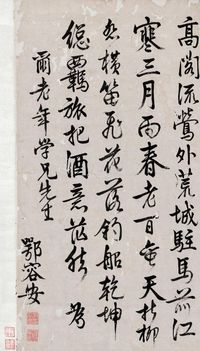 高閣流鶯外荒城駐馬前江
寒三月雨春老百天折柳
橫笛飛花落釣船乾坤
總羈旅把酒意茫然 為
爾老年学兄先生
鄂容安